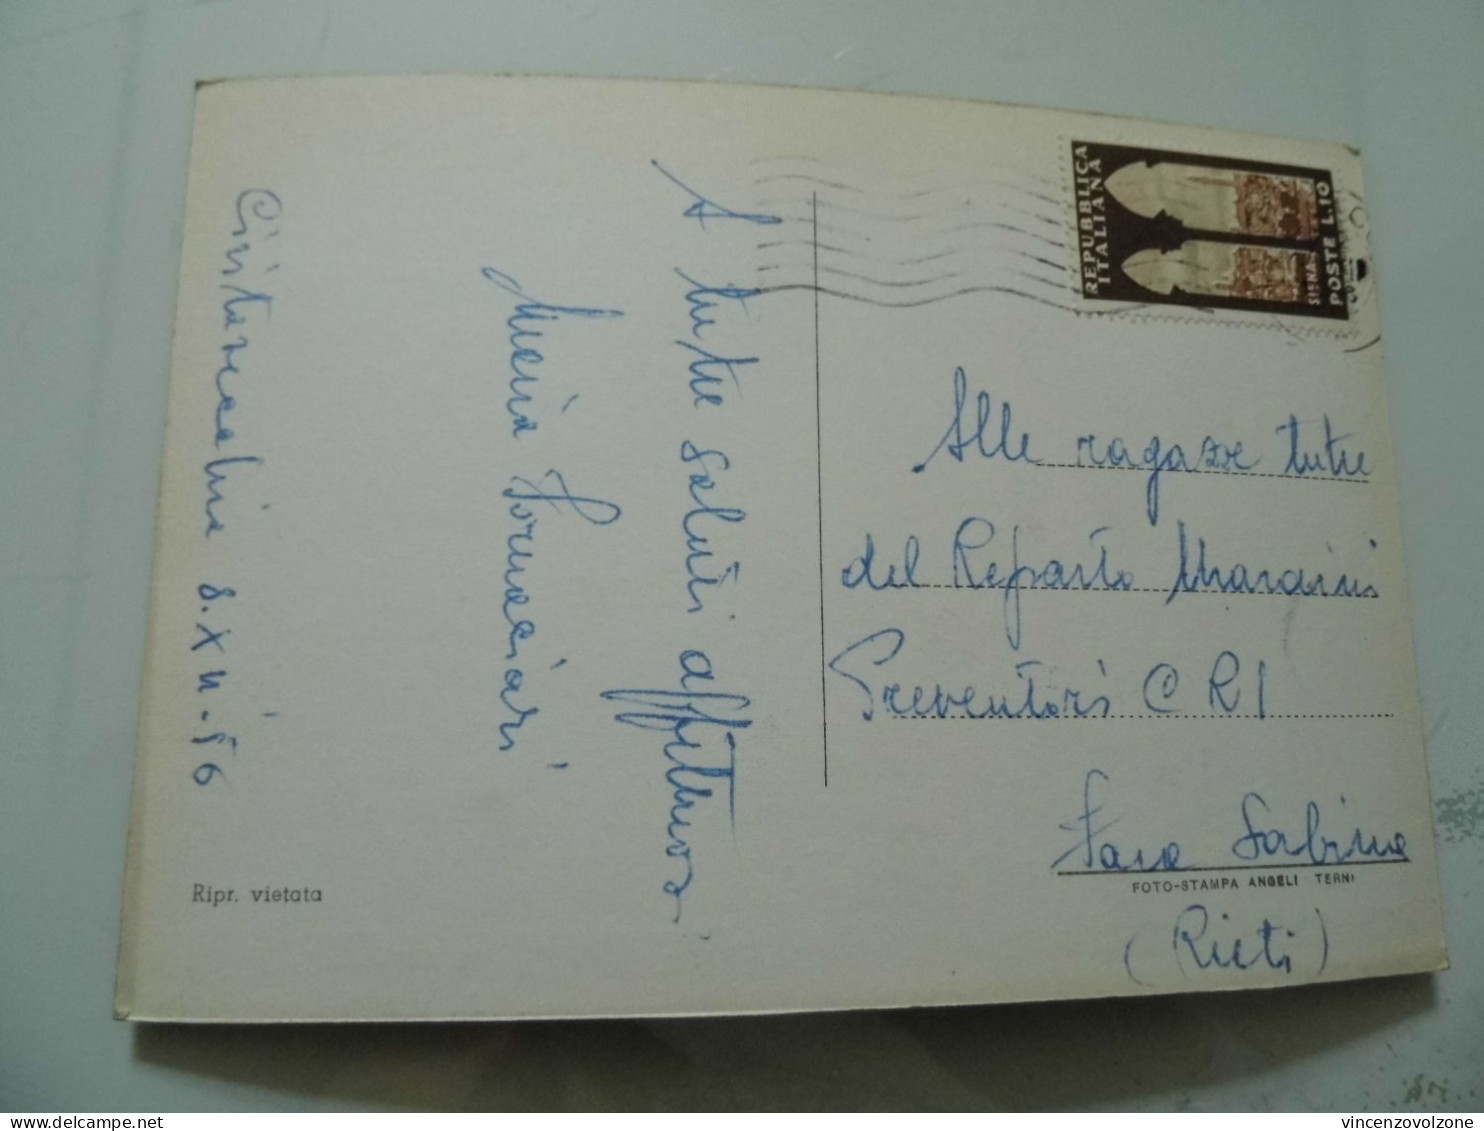 Civitavecchia 8.XII.56
A tutte saluti affettuosi
Maria Fornaciari
Ripr. vietata
REPUBBLICA
ITALIANA
SIENA
POSTE L.10
Alle ragazze tutte
del Reparto Maraini
Preventori CRI
Fara Sabina
FOTO-STAMPA ANGELI TERNI
(Rieti)
vincenzovolzone